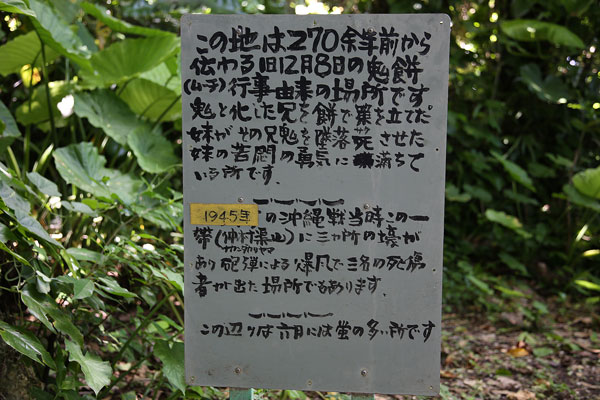 この地は270余年前から
伝わる旧12月8日の鬼餅
(ムーチー)行事由来の場所です
鬼と化した兄を餅で策を立てた
妹がその兄鬼を墜落死させた
妹の苦悶の勇気に満ちて
いる所です.
1945年の沖縄戦当時この一
帯(仲村渠山)に三ヶ所の壕が
ナカンダカリヤマ
あり砲弾による爆風で三名の死傷
者が出た場所でもあります.
この辺りは六月には蛍の多い所です